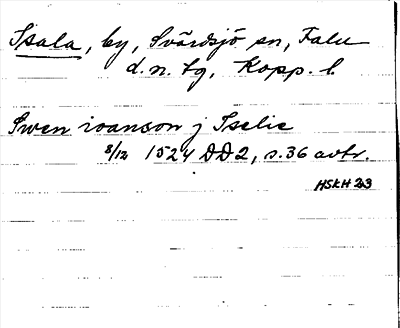 Isala, by, Svärdsjö sn, Falu
d.n. tg, Kopp. l.
Swen ioanson j Iselie
8/12 1524 DD2, s.36 avtr.
HSKH 23